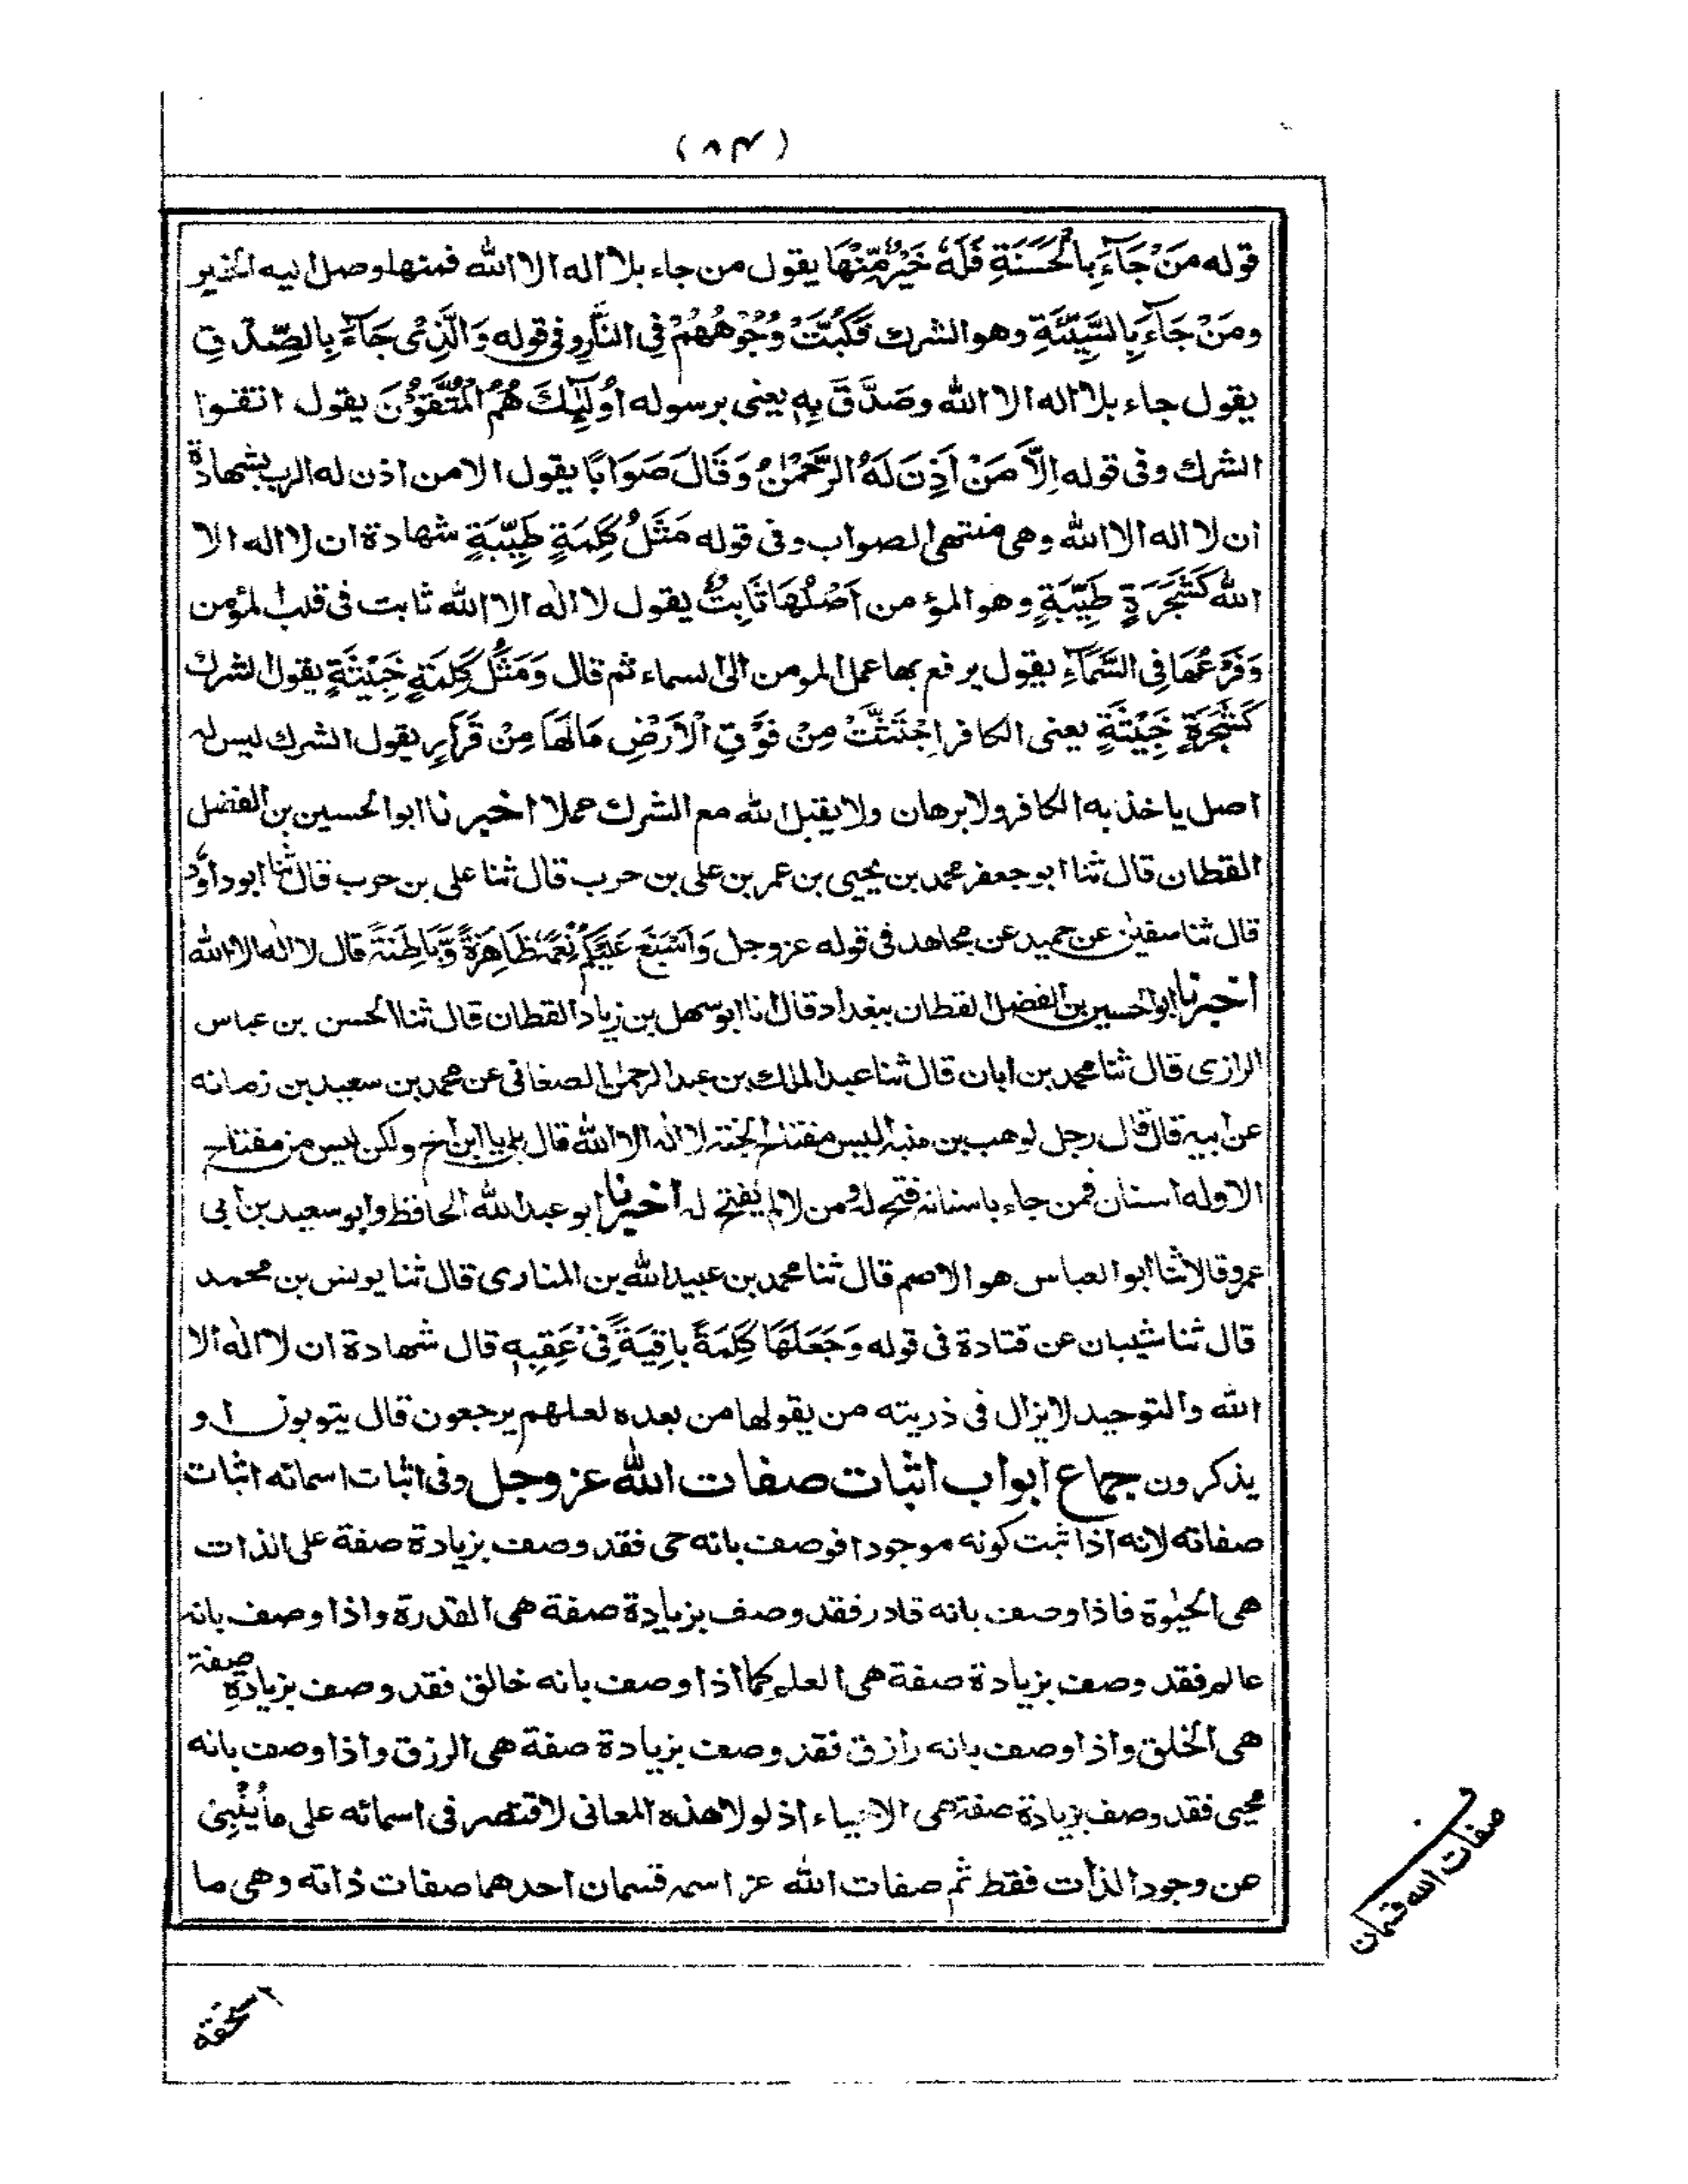 (٧٨)
قوله مَنْ جَآءَ بِالْحَسَنَةِ فَلَهٗ خَيْرٌ مِّنْهَا يقول من جاء بلا اله الا الله فمنها وصل اليه الخير
ومَنْ جَآءَ بِالسَّيِّئَةِ وهو الشرك فَكُبَّتْ وُجُوْهُهُمْ فِى النَّارِ وفى قوله وَالَّذِىْ جَآءَ بِالصِّدْقِ
يقول جاء بلا اله الا الله وصَدَّقَ بِهٖ يعنى برسوله اُولٰٓئِكَ هُمُ الْمُتَّقُوْنَ يقول اتقوا
الشرك وفى قوله اِلَّا مَنْ اَذِنَ لَهُ الرَّحْمٰنُ وَقَالَ صَوَابًا يقول الا من اذن له الرب بشهادة
ان لا اله الا الله وهى منتهى الصواب وفى قوله مَثَلُ كَلِمَةٍ طَيِّبَةٍ شهادة ان لا اله الا
الله كَشَجَرَةٍ طَيِّبَةٍ وهو المؤمن اَصْلُهَا ثَابِتٌ يقول لا اله الا الله ثابت فى قلب المؤمن
وَفَرْعُهَا فِى السَّمَآءِ يقول يرفع بها عمل المومن الى السماء ثم قال وَمَثَلُ كَلِمَةٍ خَبِيْثَةٍ يقول الشرك
كَشَجَرَةٍ خَبِيْثَةٍ يعنى الكافر اجْتُثَّتْ مِنْ فَوْقِ الْاَرْضِ مَالَهَا مِنْ قَرَارٍ يقول الشرك ليس له
اصل ياخذ به الكافر ولا برهان ولا يقبل الله مع الشرك عملا اخبرنا ابو الحسين بن الفضل
القطان قال ثنا ابو جعفر محمد بن يحيى بن عمر بن على بن حرب قال ثنا على بن حرب قال ثنا ابو داؤد
قال ثنا سفيٰن عن حميد عن مجاهد فى قوله عز وجل وَاَسْبَغَ عَلَيْكُمْ نِعَمَهٗ ظَاهِرَةً وَّبَاطِنَةً قال لا اله الا الله
اخبرنا ابو الحسين بن الفضل القطان ببغداد قال انا ابو سهل بن زياد القطان قال ثنا الحسن بن عباس
الرازى قال ثنا محمد بن ابان قال ثنا عبد الملك بن عبد الرحمٰن الصغانى عن محمد بن سعيد بن زمانه
عن ابيه قال قال رجل لوهب بن منبه اليس مفتاح الجنة لا اله الا الله قال بلى يا ابن اخ ولكن ليس من مفتاح
الا وله اسنان فمن جاء باسنانه فتح له ومن لا لم يفتح له اخبرنا ابو عبد الله الحافظ وابو سعيد بن ابى
عمرو قالا ثنا ابو العباس هو الاصم قال ثنا محمد بن عبيد الله بن المنادى قال ثنا يونس بن محمد
قال ثنا شيبان عن قتادة فى قوله وَجَعَلَهَا كَلِمَةً بَاقِيَةً فِىْ عَقِبِهٖ قال شهادة ان لا اله الا
الله والتوحيد لا يزال فى ذريته من يقولها من بعده لعلهم يرجعون قال يتوبون او
يذكرون جماع ابواب اثبات صفات الله عز وجل وفى اثبات اسمائه اثبات
صفاته لانه اذا ثبت كونه موجودا فوصف بانه حى فقد وصف بزيادة صفة على الذات
هى الحيٰوة فاذا وصف بانه قادر فقد وصف بزيادة صفة هى القدرة واذا وصف بانه
عالم فقد وصف بزيادة صفة هى العلم كما اذا وصف بانه خالق فقد وصف بزيادة صفة
هى الخلق واذا وصف بانه رازق فقد وصف بزيادة صفة هى الرزق واذا وصف بانه
محيى فقد وصف بزيادة صفة هى الاحياء اذ لولا هذه المعانى لاقتصر فى اسمائه على ما يُنْبِئ
عن وجود الذات فقط ثم صفات الله عز اسمه قسمان احدهما صفات ذاته وهى ما
صفات الله قسمان